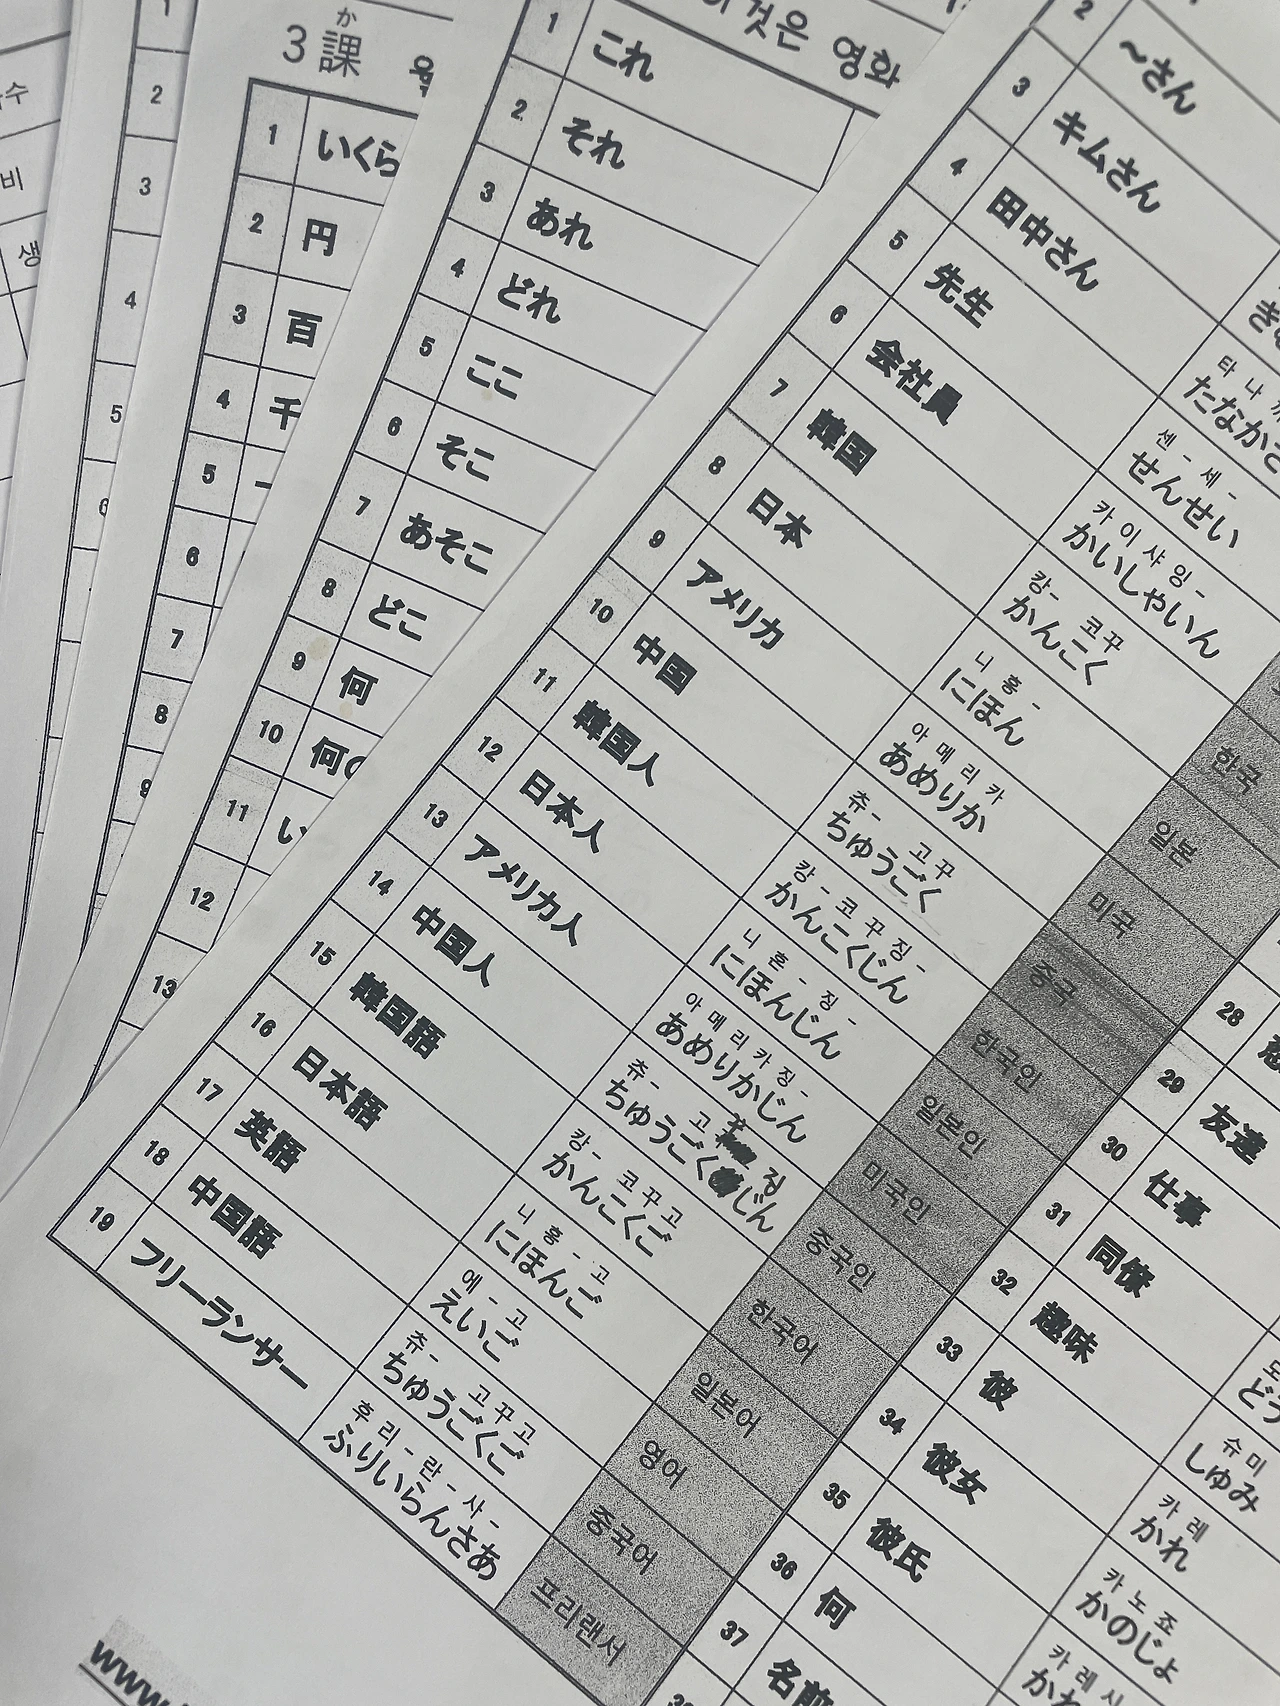 수
비
생
1
2
3
4
5
3課
か
1 いくら
2 円
3 百
4 千
5
6
7
8
9
것은 영화
1 これ
2 それ
3 あれ
4 どれ
5 ここ
6 そこ
7 あそこ
8 どこ
9 何
10 何の
11 い
12
13
2 ～さん
3 キムさん
4 田中さん たなかさ 타 나 까
5 先生 せんせい 센 - 세 -
6 会社員 かいしゃいん 카 이 샤 잉 -
7 韓国 かんこく 캉 - 코 꾸 한국
8 日本 にほん 니 홍 - 일본
9 アメリカ あめりか 아 메 리 카 미국
10 中国 ちゅうごく 츄 - 고 꾸 중국
11 韓国人 かんこくじん 캉 - 코 꾸 징 - 한국인
12 日本人 にほんじん 니 혼 - 징 - 일본인
13 アメリカ人 あめりかじん 아 메 리 카 징 - 미국인
14 中国人 ちゅうごくじん 츄 - 고 꾸 징 중국인
15 韓国語 かんこくご 캉 - 코 꾸 고 한국어
16 日本語 にほんご 니 홍 - 고 일본어
17 英語 えいご 에 - 고 영어
18 中国語 ちゅうごくご 츄 - 고 꾸 고 중국어
19 フリーランサー ふりいらんさあ 후 리 - 란 - 사 - 프리랜서
28
29 友達
30 仕事
31 同僚 どう
32 趣味 しゅみ 슈 미
33 彼 かれ 카 레
34 彼女 かのじょ 카 노 죠
35 彼氏 かれ 카 레 시
36 何
37 名前
www.